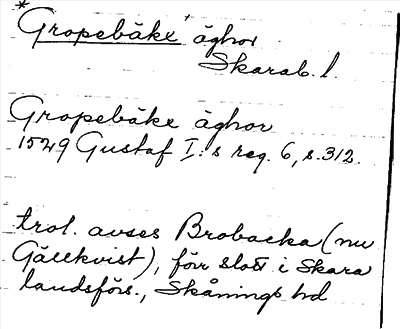 *Gropebäke äghor
Skarab. l.
Gropebäke äghor
1529 Gustaf I:s reg. 6, s. 312.
trol. avses Brobacka (nu
Gällkvist), förr slott i Skara
landsförs., Skånings hd